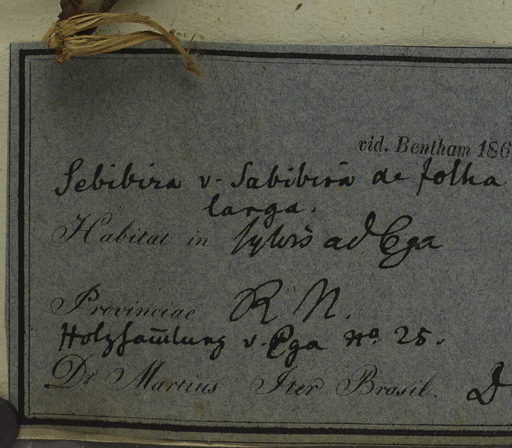 vid. Bentham 186
Sebibira v. Sabibira de folha
larga.
Habitat in sylvis ad Ega
Provinciae R. N.
Holzsam̅lung v. Ega No 25.
Dr Martius Iter Brasil. D